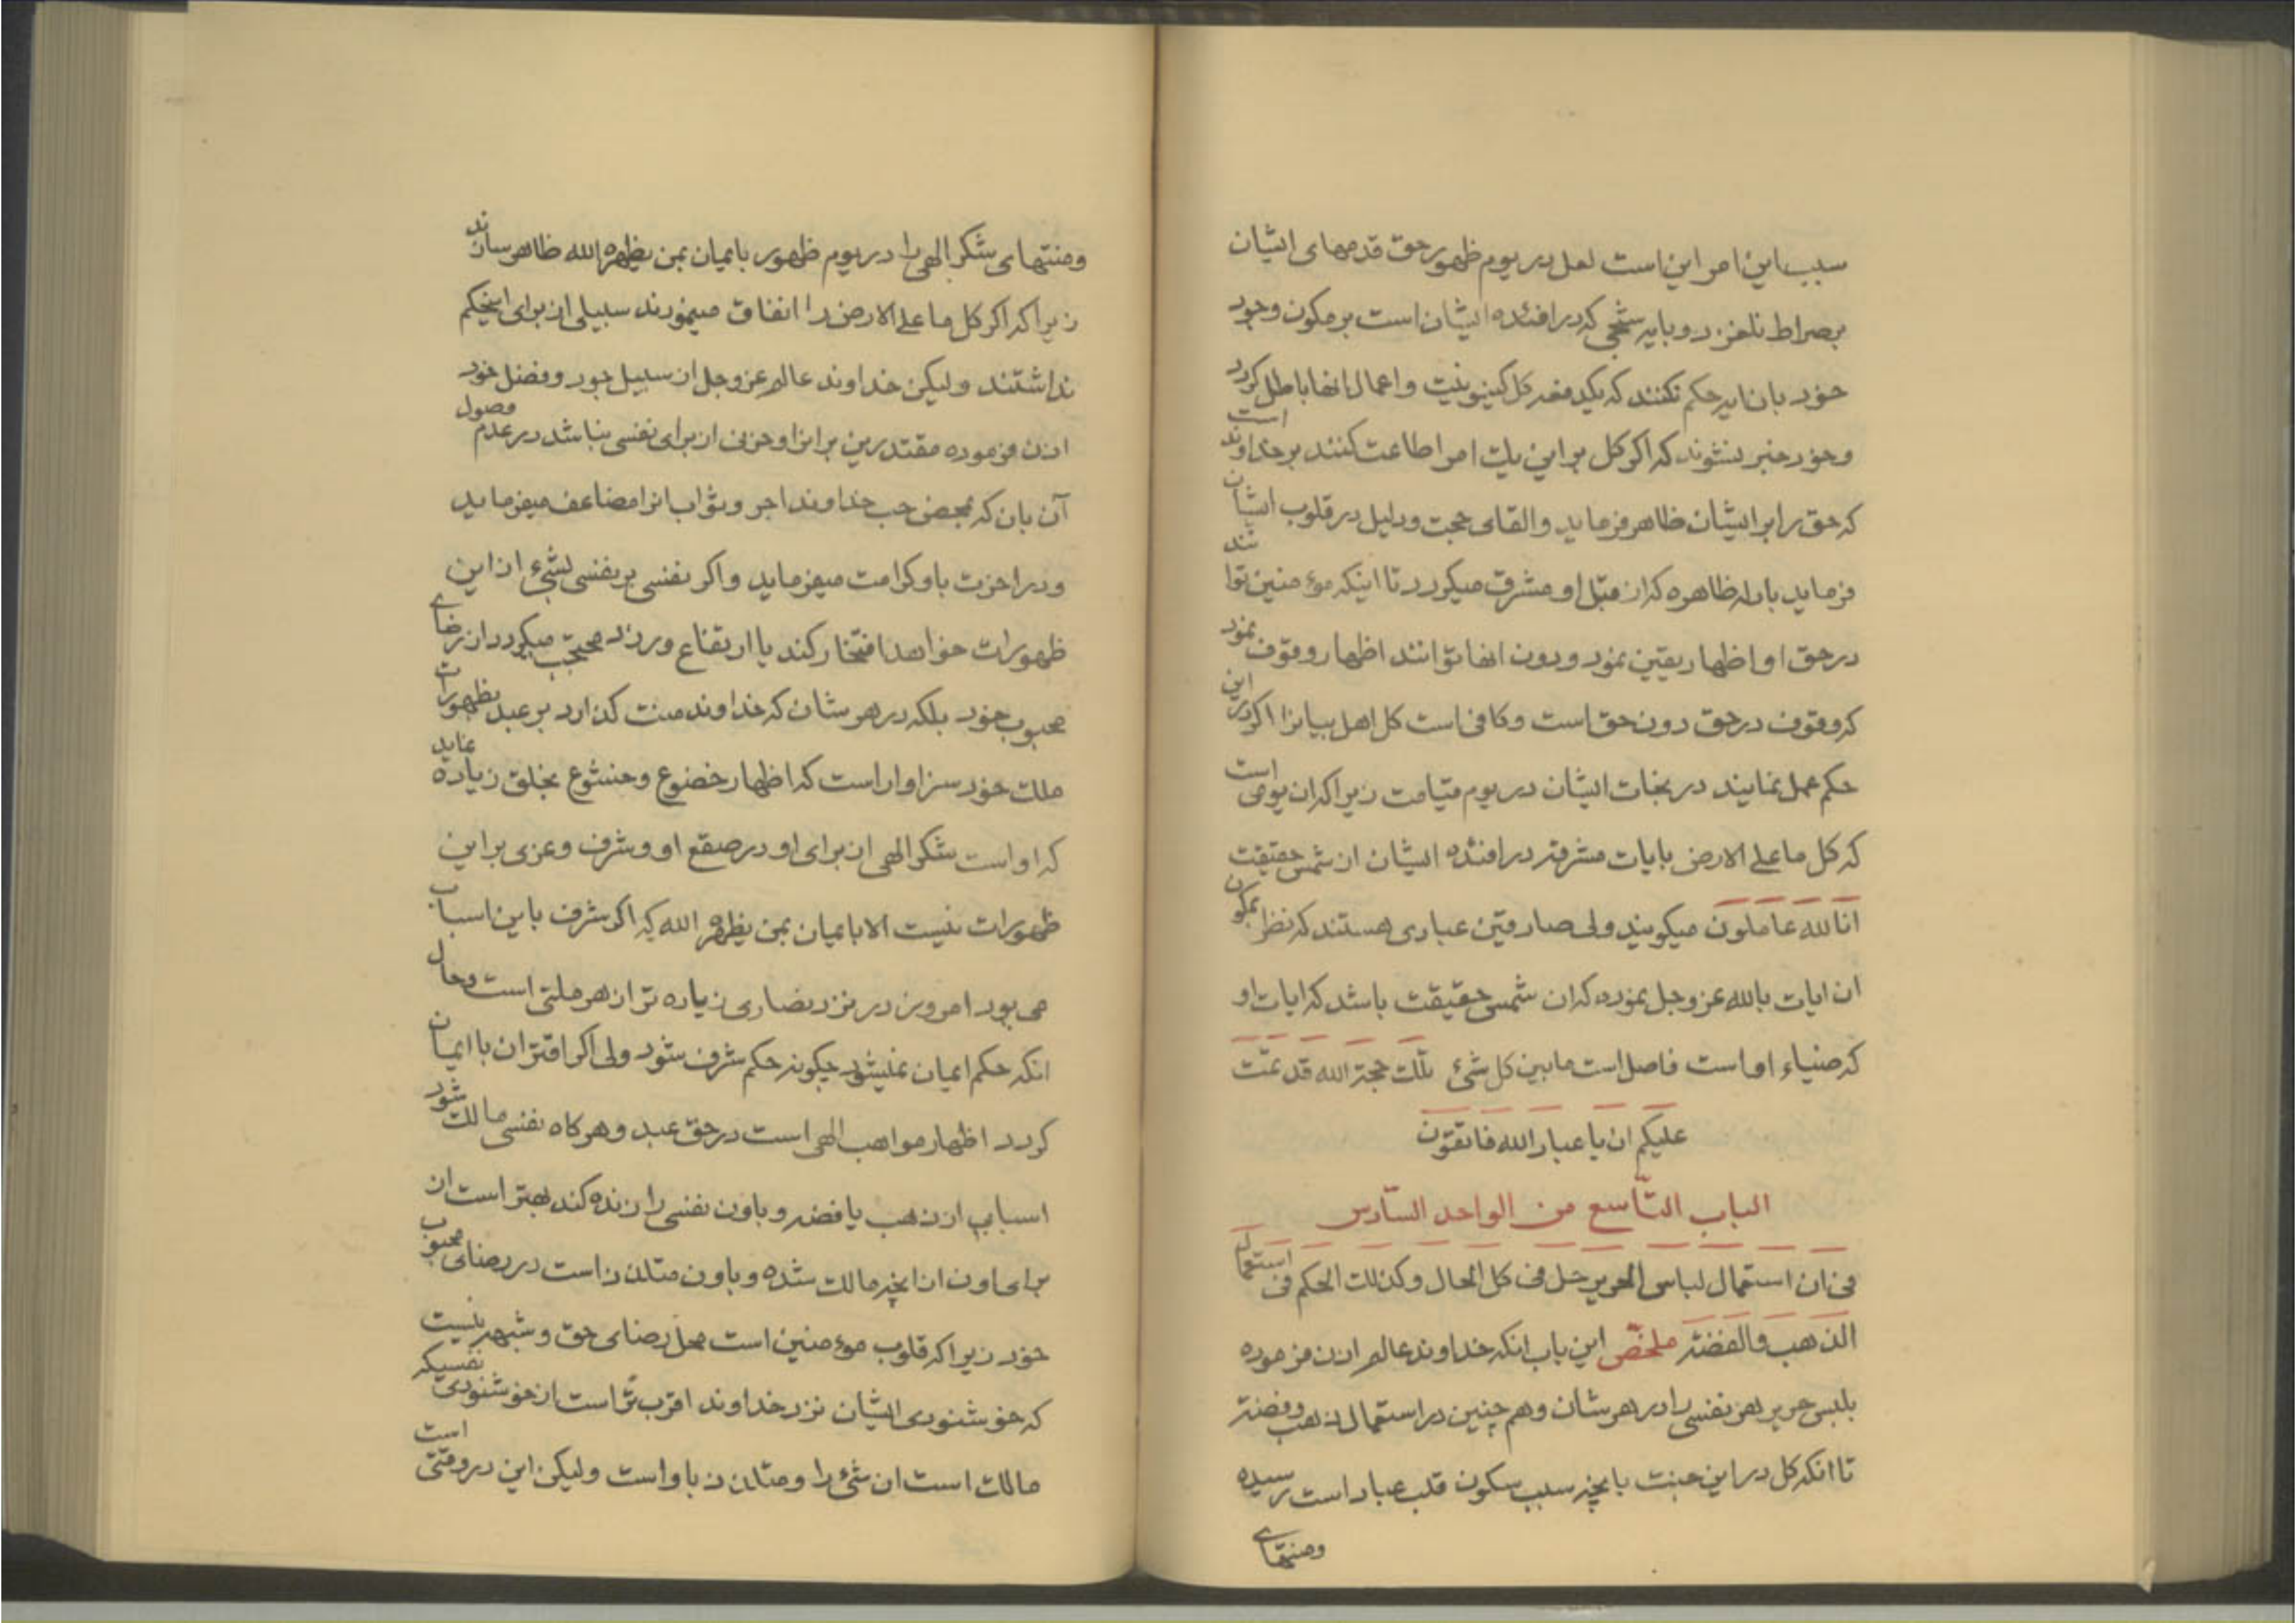 سبب این امر این است لعل در یوم ظهور حق قدمهای ایشان
بصراط نلغزد و بایه شبحی که در افئده ایشان است بر مکون وجود
خود بان ایه حکم نکنند که یکدفعه کل کینونیت و اعمال انها باطل گردد
و خود خبر نشوند که اگر کل بر این یک امر اطاعت کنند بر خداوند است
که حق را بر ایشان ظاهر فرماید و القای حجت و دلیل در قلوب ایشان
فرماید بادله ظاهره که از قبل او مشرق میگردد تا اینکه موءمنین توانند
در حق او اظهار یقین نمود و دون انها توانند اظهار وقوف نمود
که وقوف در حق دون حق است و کافی است کل اهل بیانرا اگر در این
حکم عمل نمایند در نجات ایشان در یوم قیامت زیرا که ان یومی است
که کل ما علی الارض بایات مشرقه در افئده ایشان از شمس حقیقت
انا لله عاملون میگویند ولی صادقین عبادی هستند که نظر بمکون
ان ایات بالله عز وجل نموده که ان شمس حقیقت باشد که ایات او
که ضیاء او است فاصل است مابین کل شئ تلک حجة الله قد تمّت
علیکم ان یا عباد الله فاتقون
الباب التّاسع من الواحد السّادس
فی ان استعمال لباس الحریر حل فی کل الحال و کذلک الحکم فی استعمال
الذهب والفضّة ملخّص این باب انکه خداوند عالم اذن فرموده
بلبس حریر هر نفسی را در هر شان و هم چنین در استعمال ذهب و فضة
تا انکه کل در این جنت بانچه سبب سکون قلب عباد است رسیده
ومنتهای
ومنتهای شکر الهی را در یوم ظهور بایمان بمن یظهره الله ظاهر سازند
زیرا که اگر کل ما علی الارض را انفاق مینمودند سبیلی از برای اینحکم
نداشتند ولیکن خداوند عالم عز وجل از سبیل جود و فضل خود
اذن فرموده مقتدرین بر انرا و حزنی از برای نفسی نباشد در عدم وصول
آن بان که بمحض حب خداوند اجر و ثواب انرا مضاعف میفرماید
و در اخرت باو کرامت میفرماید و اگر نفسی بر نفسی بشئ از این
ظهورات خواهد افتخار کند یا ارتفاع ورزد محتجب میگردد از رضای
محبوب خود بلکه در هر شان که خداوند منت گذارد بر عبد بظهورات
ملک خود سزاوار است که اظهار خضوع و خشوع بخلق زیاده نماید
که او است شکر الهی از برای او در صقع او و شرف و عزی بر این
ظهورات نیست الا بایمان بمن یظهره الله که اگر شرف باین اسباب
می بود امروز در نزد نصاری زیاده تر از هر ملتی است وحال
انکه حکم ایمان نمیشود چگونه حکم شرف شود ولی اگر اقتران با ایمان
گردد اظهار مواهب الهی است در حق عبد و هرگاه نفسی مالک شود
اسبابی از ذهب یا فضه و باون نفسی را زنده کند بهتر است از
برای اون از انچه مالک شده و باون متلذذ است در رضای محبوب
خود زیرا که قلوب موءمنین است محل رضای حق و شبهه نیست
که خوشنودی ایشان نزد خداوند اقرب تر است از خوشنودی نفسیکه
مالک است ان شئ را و متلذذ باو است ولیکن این در وقتی است